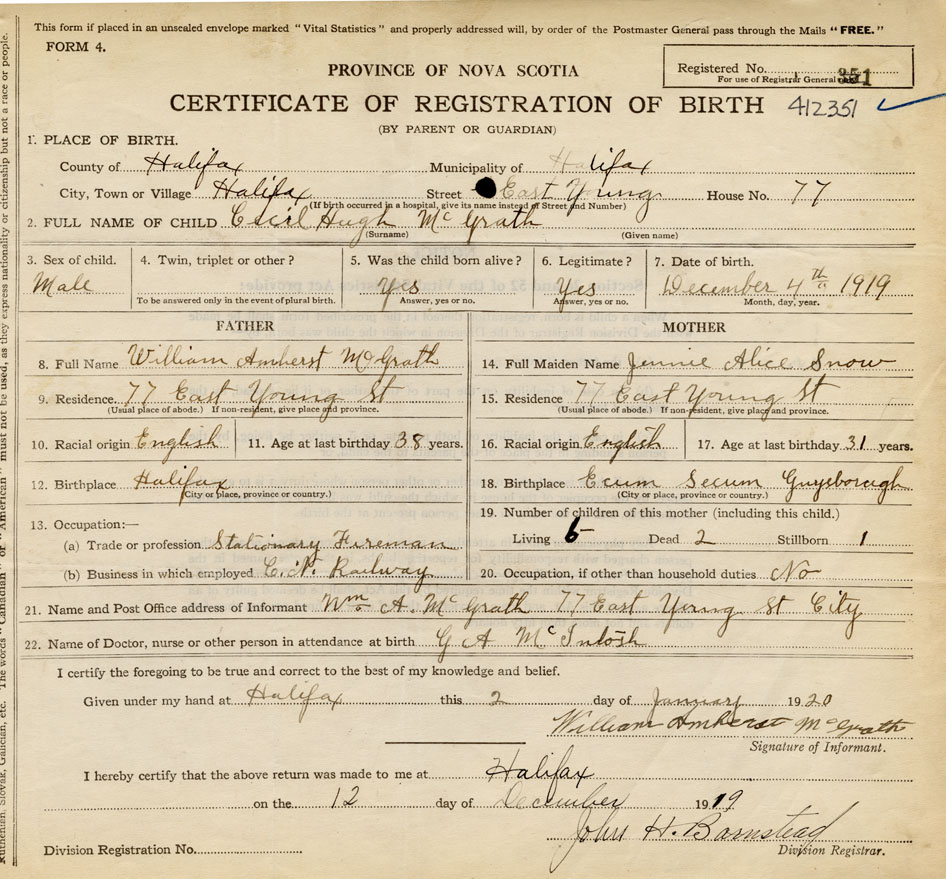 This form if placed in an unsealed envelope marked "Vital Statistics" and properly addressed will, by order of the Postmaster General pass through the Mails "FREE."
FORM 4.
Registered No. 351
For use of Registrar General
PROVINCE OF NOVA SCOTIA
CERTIFICATE OF REGISTRATION OF BIRTH 412351
(BY PARENT OR GUARDIAN)
1. PLACE OF BIRTH.
County of Halifax Municipality of Halifax
City, Town or Village Halifax Street East Young House No. 77
(If birth occurred in a hospital, give its name instead of Street and Number)
2. FULL NAME OF CHILD Cecil Hugh McGrath
(Surname) (Given name)
3. Sex of child. 4. Twin, triplet or other? 5. Was the child born alive? 6. Legitimate? 7. Date of birth.
Male Yes Yes December 4th 1919
To be answered only in the event of plural birth. Answer, yes or no. Answer, yes or no. Month, day, year.
FATHER MOTHER
8. Full Name William Amherst McGrath 14. Full Maiden Name Jennie Alice Snow
9. Residence. 77 East Young St 15. Residence 77 East Young St
(Usual place of abode.) If non-resident, give place and province. (Usual place of abode.) If non-resident, give place and province.
10. Racial origin English 11. Age at last birthday 38 years. 16. Racial origin English 17. Age at last birthday 31 years.
12. Birthplace Halifax 18. Birthplace Ecum Secum Guysborough
(City or place, province or country.) (City or place, province or country.)
13. Occupation:— 19. Number of children of this mother (including this child.)
(a) Trade or profession Stationary Fireman Living 6 Dead 2 Stillborn 1
(b) Business in which employed C.N. Railway 20. Occupation, if other than household duties No
21. Name and Post Office address of Informant Wm A. McGrath 77 East Young St City
22. Name of Doctor, nurse or other person in attendance at birth G A McIntosh
I certify the foregoing to be true and correct to the best of my knowledge and belief.
Given under my hand at Halifax this 2 day of January 1920
William Amherst McGrath
Signature of Informant.
I hereby certify that the above return was made to me at Halifax
on the 12 day of December 1919
John H. Barnstead
Division Registration No. Division Registrar.
Ruthenian, Slovak, Galician, etc. The words "Canadian" or "American" must not be used, as they express nationality or citizenship but not a race or people.